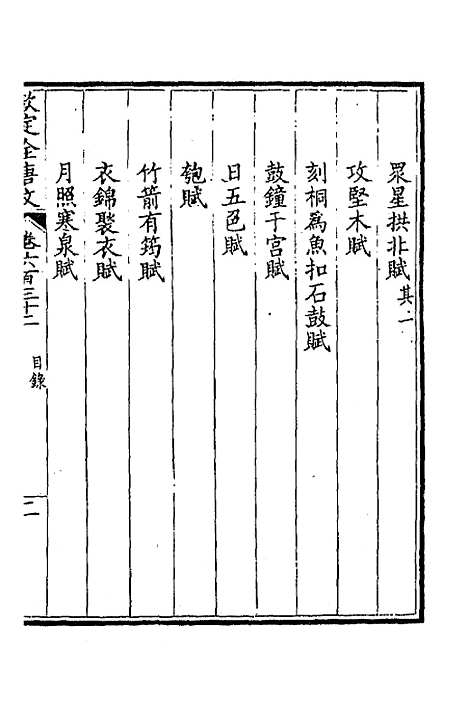 眾星拱北賦其一
攻堅木賦
刻桐為魚扣石鼓賦
鼓鐘于宮賦
日五色賦
匏賦
竹箭有筠賦
衣錦褧衣賦
月照寒泉賦
欽定全唐文 卷六百三十二 目錄 二